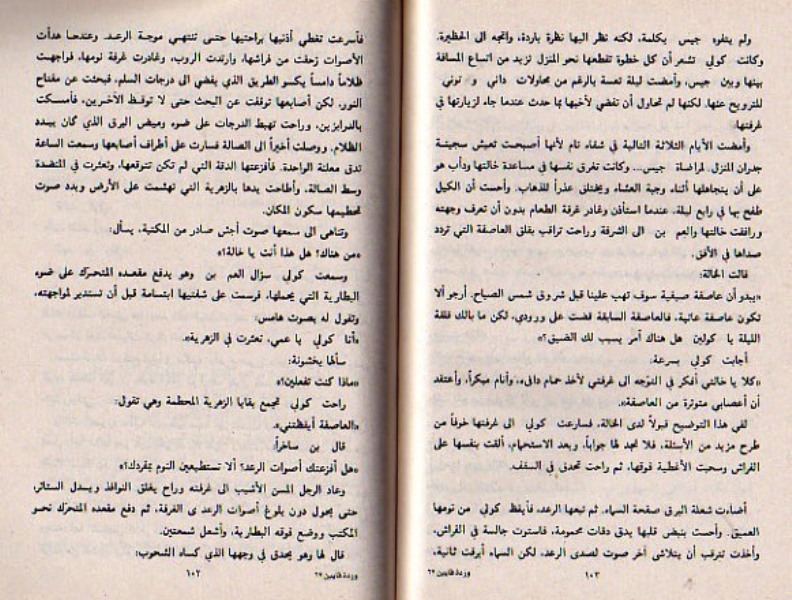 ولم يتفوه جيس بكلمة، لكنه نظر اليها نظرة باردة، واتجه الى الحظيرة.
وكانت كولي تشعر أن كل خطوة تقطعها نحو المنزل تزيد من اتساع المسافة
بينها وبين جيس، وأمضت ليلة تعسة بالرغم من محاولات داني و توني
للترويح عنها، لكنها لم تحاول أن تفضي لأخيها بما حدث عندما جاء لزيارتها في
غرفتها.
وأمضت الأيام الثلاثة التالية في شقاء تام لأنها أصبحت تعيش سجينة
جدران المنزل لمراضاة جيس... وكانت تغرق نفسها في مساعدة خالتها ودأب هو
على أن يتجاهلها أثناء وجبة العشاء ويختلق عذراً للذهاب. وأحست أن الكيل
طفح بها في رابع ليلة، عندما استأذن وغادر غرفة الطعام بدون أن تعرف وجهته
ورافقت خالتها والعم بن الى الشرفة وراحت تراقب بقلق العاصفة التي تردد
صداها في الأفق.
قالت الخالة:
«يبدو أن عاصفة صيفية سوف تهب علينا قبل شروق شمس الصباح. أرجو ألا
تكون عاصفة عاتية، فالعاصفة السابقة قضت على ورودي، لكن ما بالك قلقة
الليلة يا كولين هل هناك أمر يسبب لك الضيق؟»
أجابت كولي بسرعة:
«كلا يا خالتي أفكر في التوجه الى غرفتي لأخذ حمام دافىء، وأنام مبكراً، وأعتقد
أن أعصابي متوترة من العاصفة».
لقي هذا التوضيح قبولاً لدى الخالة، فسارعت كولي الى غرفتها خوفاً من
طرح مزيد من الأسئلة، فلا تجد لها جواباً. وبعد الاستحمام، ألقت بنفسها على
الفراش وسحبت الأغطية فوقها، ثم راحت تحدق في السقف.
أضاءت شعلة البرق صفحة السماء، ثم تبعها الرعد، فأيقظ كولي من نومها
العميق. وأحست بنبض قلبها يدق دقات محمومة، فاستوت جالسة في الفراش،
وأخذت تترقب أن يتلاشى آخر صوت لصدى الرعد، لكن السماء أبرقت ثانية،
١٠٢ وردة قايين ٦٧
فأسرعت تغطي أذنيها براحتيها حتى تنتهي موجة الرعد. وعندما هدأت
الأصوات زحفت من فراشها، وارتدت الروب، وغادرت غرفة نومها، فواجهت
ظلاماً دامساً يكسو الطريق الذي يفضي الى درجات السلم، فبحثت عن مفتاح
النور، لكن أصابعها توقفت عن البحث حتى لا توقظ الآخرين، فأمسكت
بالدرابزين، وراحت تهبط الدرجات على ضوء وميض البرق الذي كان يبدد
الظلام، ووصلت أخيراً الى الصالة فسارت على أطراف أصابعها وسمعت الساعة
تدق معلنة الواحدة. فأفزعتها الدقة التي لم تكن تتوقعها، وتعثرت في المنضدة
وسط الصالة، وأطاحت يدها بالزهرية التي تهشمت على الأرض وبدد صوت
تحطيمها سكون المكان.
وتناهى الى سمعها صوت أجش صادر من المكتبة، يسأل:
«من هناك! هل هذا أنت يا خالة!»
وسمعت كولي سؤال العم بن وهو يدفع مقعده المتحرك على ضوء
البطارية التي يحملها، فرسمت على شفتيها ابتسامة قبل أن تستدير لمواجهته،
وتقول له بصوت هامس:
«أنا كولي يا عمي، تعثرت في الزهرية».
سألها بخشونة:
«ماذا كنت تفعلين؟»
راحت كولي تجمع بقايا الزهرية المحطمة وهي تقول:
«العاصفة أيقظتني».
قال بن ساخراً:
«هل أفزعتك أصوات الرعد؟ ألا تستطيعين النوم بمفردك؟»
وعاد الرجل المسن الأشيب الى غرفته وراح يغلق النوافذ ويسدل الستائر،
حتى يحول دون بلوغ أصوات الرعد الى الغرفة، ثم دفع مقعده المتحرك نحو
المكتب ووضع فوقه البطارية، وأشعل شمعتين.
قال لها وهو يحدق في وجهها الذي كساه الشحوب:
١٠٢ وردة قايين ٦٧